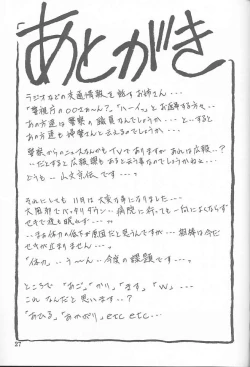 あとがき
ラジオなどの交通情報を話すお姉さん・・・
「警視庁の○○さ〜ん?」「ハーイ」とお返事する方々・・
あの方達は警察の職員なんでしょうか・・・と・・・すると
あの方達も婦警さんと云えるのでしょうか・・・
警察からのニュースなんかもTVでありますが あれは広報・・?
・・だとすると広報課もあると云う事なのでしょうかねェ・・・
どうも・・
それにしても 11月は大変な事になりました・・・
大風邪でバッタリダウン・・病院に行っても一向によくならず
せきで夜も眠れず・・・
・・まぁ体力の低下が原因だと思うんですが・・・ 結構は今だ
せきが止まりません・・・。
「体力」・・う〜ん・・今度の課題です・・・。
ところで 「あご」「かり」「ます」「W」・・・
これ なんだと思います・・?
「あひる」「あかがり」etc etc・・・
27